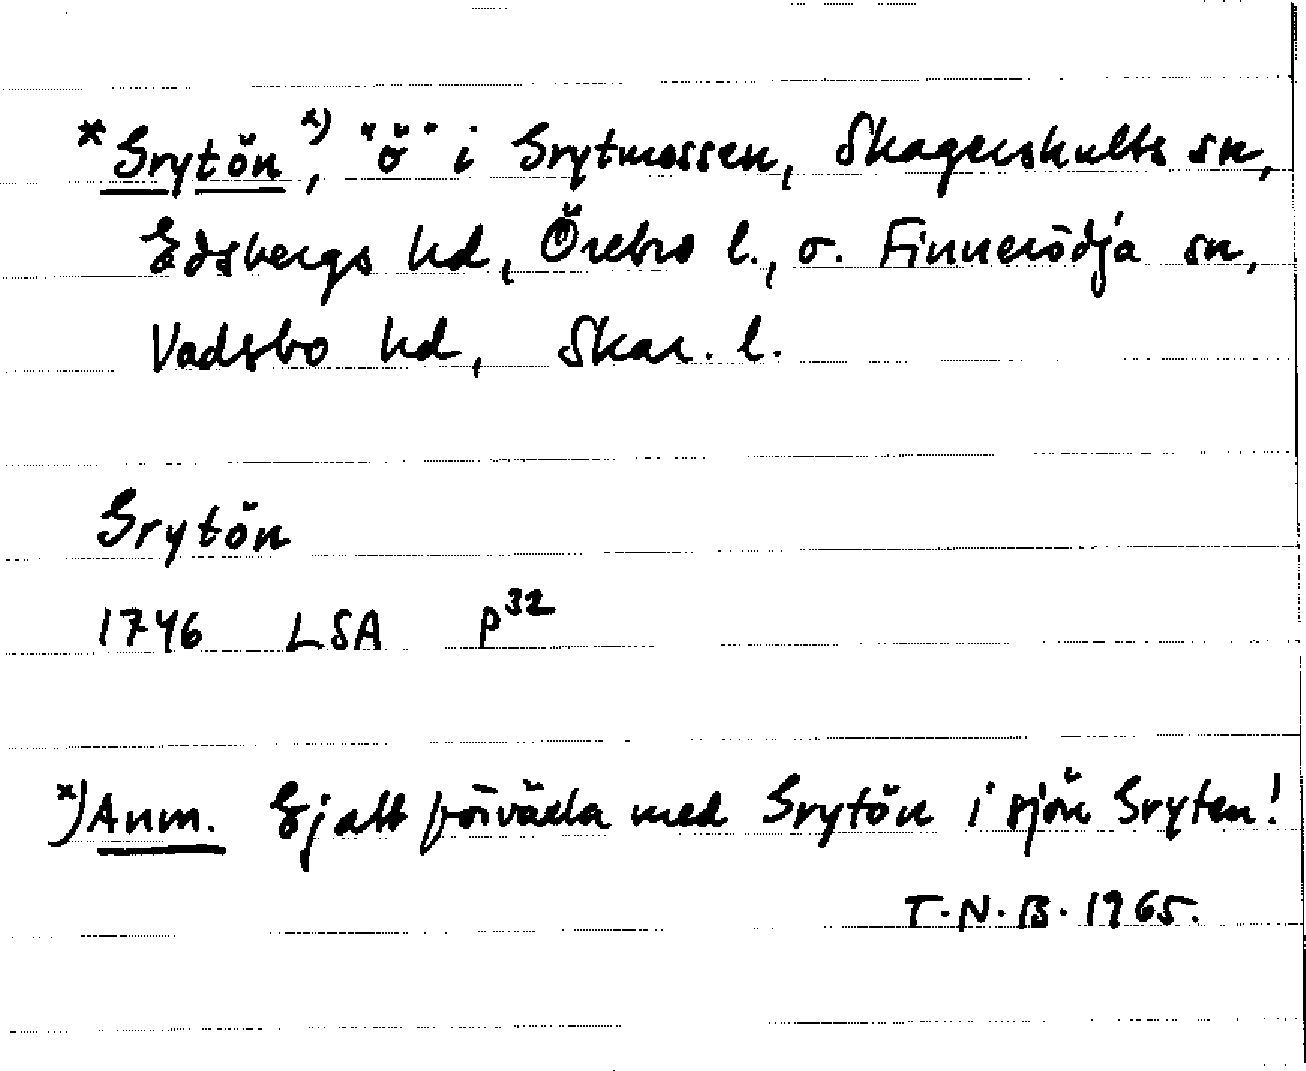 *Grytön x), "ö" i Grytmossen, Skagershults sn,
Edsbergs hd, Örebro l., o. Finnerödja sn,
Vadsbo hd, Skar. l.
Grytön
1746 LSA P32
x) Anm. Ej att förväxla med Grytön i sjön Gryten!
T.N.B. 1965.